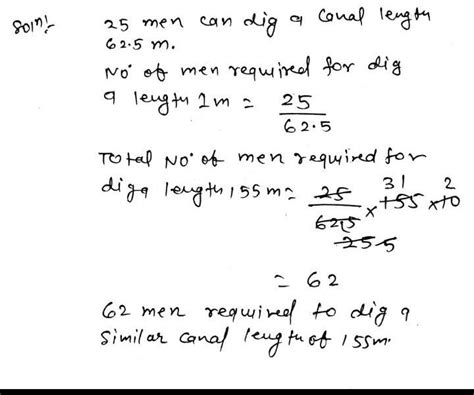 Soln:- 25 men can dig a canal length
62.5 m.
No. of men required for dig
a length 1m = 25/62.5
Total No. of men required for
dig a length 155m = 25/62.5 × 155 × 10
31 2
25 5
= 62
62 men required to dig a
similar canal length of 155m.